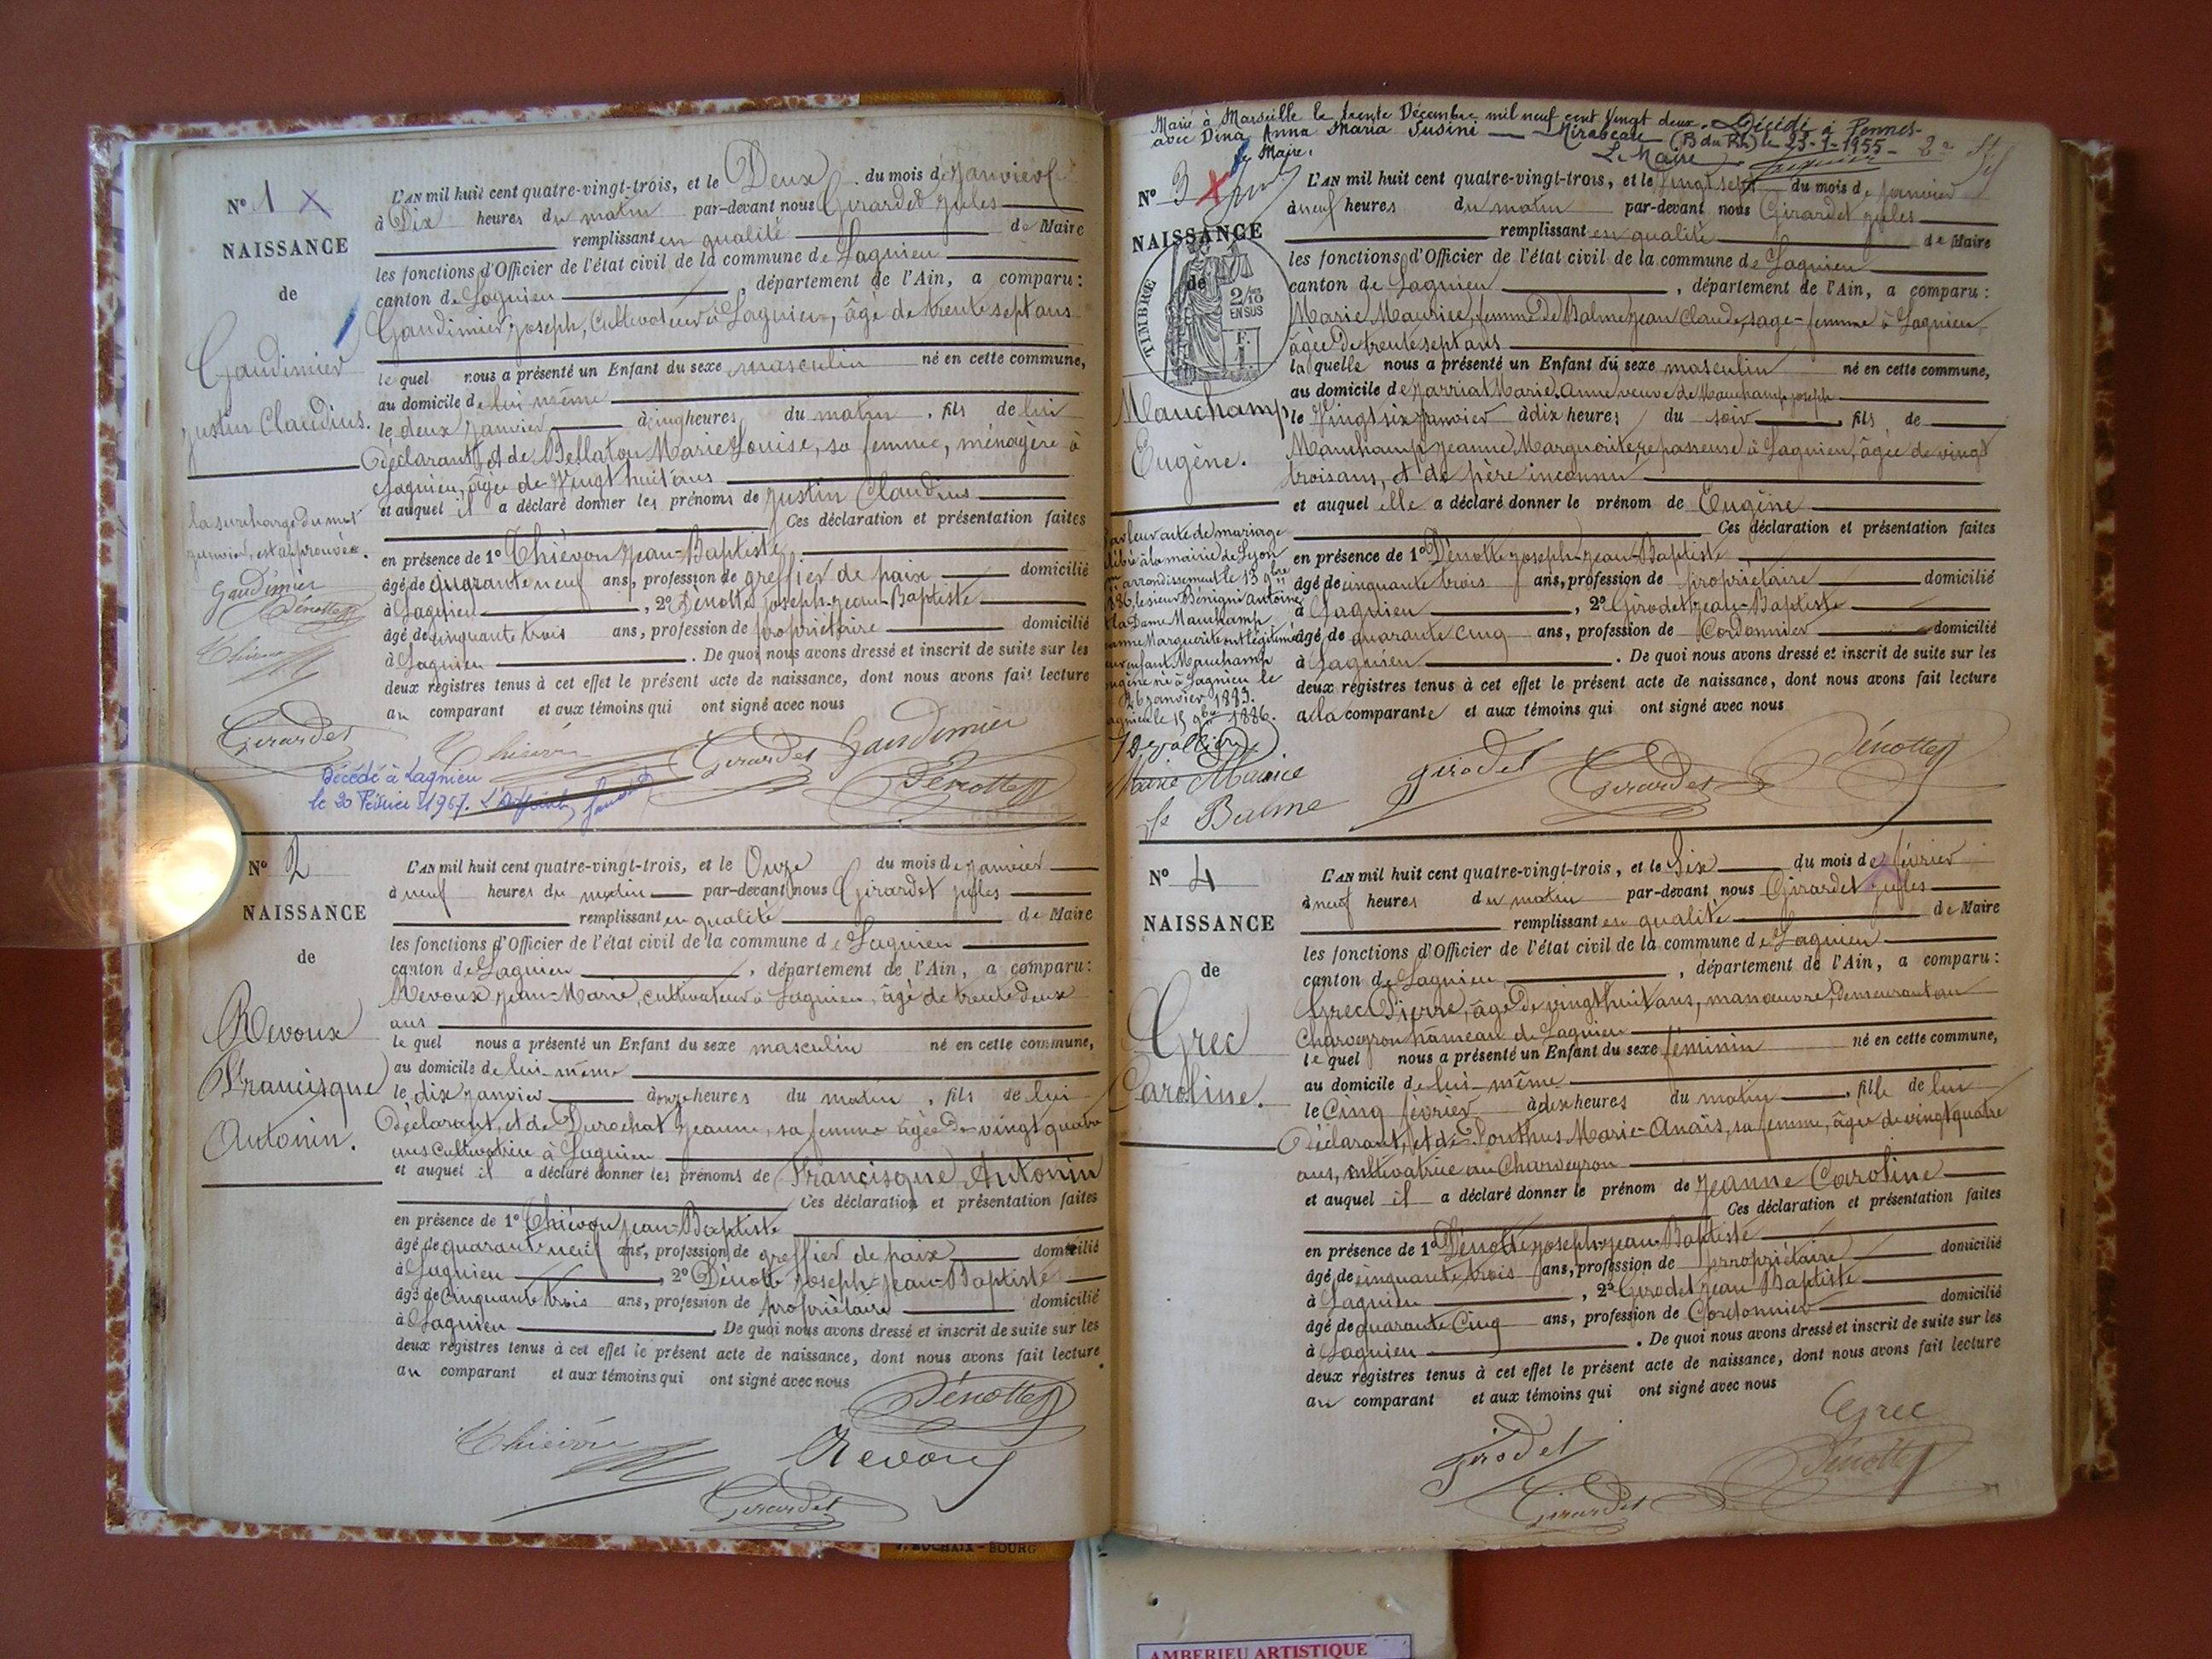 N° 1 X
NAISSANCE
de
Gaudimier
Justin Claudius.
la surcharge du mot
janvier, est approuvée.
Gaudimier
Dénotte
Thiévon
Girardet
L'AN mil huit cent quatre-vingt-trois, et le Deux du mois de janvier
à Dix heures du matin par-devant nous Girardet Jules
remplissant en qualité de Maire
les fonctions d'Officier de l'état civil de la commune de Lagnieu
canton de Lagnieu, département de l'Ain, a comparu:
Gaudimier Joseph, Cultivateur à Lagnieu, âgé de trente sept ans
lequel nous a présenté un Enfant du sexe masculin né en cette commune,
au domicile de lui même
le deux janvier à cinq heures du matin, fils de lui
Déclarant, et de Bellaton Marie Louise, sa femme, ménagère à
Lagnieu, âgée de Vingt huit ans
et auquel il a déclaré donner les prénoms de Justin Claudius
Ces déclaration et présentation faites
en présence de 1° Thiévon Jean-Baptiste
âgé de quarante neuf ans, profession de greffier de paix domicilié
à Lagnieu, 2° Dénotte Joseph-Jean-Baptiste
âgé de cinquante trois ans, profession de propriétaire domicilié
à Lagnieu. De quoi nous avons dressé et inscrit de suite sur les
deux registres tenus à cet effet le présent acte de naissance, dont nous avons fait lecture
au comparant et aux témoins qui ont signé avec nous
Thiévon Girardet Gaudimier
Dénotte
Décédé à Lagnieu
le 20 Février 1967. L'Adjoint
N° 2
NAISSANCE
de
Revoux
Francisque
Antonin.
L'AN mil huit cent quatre-vingt-trois, et le Onze du mois de janvier
à neuf heures du matin par-devant nous Girardet Jules
remplissant en qualité de Maire
les fonctions d'Officier de l'état civil de la commune de Lagnieu
canton de Lagnieu, département de l'Ain, a comparu:
Revoux Jean-Marie, cultivateur à Lagnieu, âgé de trente deux
ans
lequel nous a présenté un Enfant du sexe masculin né en cette commune,
au domicile de lui-même
le dix janvier à onze heures du matin, fils de lui
Déclarant, et de Durochat Jeanne, sa femme âgée de vingt quatre
ans Cultivatrice à Lagnieu
et auquel il a déclaré donner les prénoms de Francisque Antonin
Ces déclaration et présentation faites
en présence de 1° Thiévon Jean-Baptiste
âgé de quarante neuf ans, profession de greffier de paix domicilié
à Lagnieu, 2° Dénotte Joseph-Jean-Baptiste
âgé de Cinquante trois ans, profession de propriétaire domicilié
à Lagnieu. De quoi nous avons dressé et inscrit de suite sur les
deux registres tenus à cet effet le présent acte de naissance, dont nous avons fait lecture
au comparant et aux témoins qui ont signé avec nous
Dénotte
Thiévon Revoux
Girardet
Marié à Marseille le trente Décembre mil neuf cent Vingt deux. Décédé à Pennes-
avec Dina Anna Maria Susini Mirabeau (B du Rh) le 23-1-1955-
le Maire. Le Maire
N° 3 X
NAISSANCE
de
TIMBRE
2/10
EN SUS
F.
1.
Mauchamp
Eugène.
Par leur acte de mariage
célébré à la mairie de Lyon
arrondissement le 13 9bre
1886, le sieur Bénigni Antoine
et la Dame Mauchamp
Jeanne Marguerite ont légitimé
leur enfant Mauchamp
Eugène né à Lagnieu le
26 janvier 1883.
Lagnieu le 15 9bre 1886.
Marie Maurice
fe Balme
L'AN mil huit cent quatre-vingt-trois, et le Vingt sept du mois de janvier
à neuf heures du matin par-devant nous Girardet Jules
remplissant en qualité de Maire
les fonctions d'Officier de l'état civil de la commune de Lagnieu
canton de Lagnieu, département de l'Ain, a comparu:
Marie Maurice, femme de Balme Jean Claude, sage-femme à Lagnieu,
âgée de trente sept ans
laquelle nous a présenté un Enfant du sexe masculin né en cette commune,
au domicile de Jarriat Marie Anne veuve de Mauchamp Joseph
le Vingt six janvier à dix heures du soir, fils de
Mauchamp Jeanne Marguerite, repasseuse à Lagnieu, âgée de vingt
trois ans, et de père inconnu
et auquel elle a déclaré donner le prénom de Eugène
Ces déclaration et présentation faites
en présence de 1° Dénotte Joseph-Jean-Baptiste
âgé de cinquante trois ans, profession de propriétaire domicilié
à Lagnieu, 2° Girodet Jean-Baptiste
âgé de quarante cinq ans, profession de Cordonnier domicilié
à Lagnieu. De quoi nous avons dressé et inscrit de suite sur les
deux registres tenus à cet effet le présent acte de naissance, dont nous avons fait lecture
à la comparante et aux témoins qui ont signé avec nous
Girodet Girardet Dénotte
N° 4
NAISSANCE
de
Grec
Caroline.
L'AN mil huit cent quatre-vingt-trois, et le Six du mois de février
à neuf heures du matin par-devant nous Girardet Jules
remplissant en qualité de Maire
les fonctions d'Officier de l'état civil de la commune de Lagnieu
canton de Lagnieu, département de l'Ain, a comparu:
Grec Pierre, âgé de vingt huit ans, manœuvre, demeurant au
Charveyron hameau de Lagnieu
lequel nous a présenté un Enfant du sexe féminin né en cette commune,
au domicile de lui-même
le Cinq février à dix heures du matin, fille de lui
Déclarant, et de Ponthus Marie-Anaïs, sa femme, âgée de vingt quatre
ans, cultivatrice au Charveyron
et auquel il a déclaré donner le prénom de Jeanne Caroline
Ces déclaration et présentation faites
en présence de 1° Dénotte Joseph-Jean-Baptiste
âgé de cinquante trois ans, profession de propriétaire domicilié
à Lagnieu, 2° Girodet Jean Baptiste
âgé de quarante Cinq ans, profession de Cordonnier domicilié
à Lagnieu. De quoi nous avons dressé et inscrit de suite sur les
deux registres tenus à cet effet le présent acte de naissance, dont nous avons fait lecture
au comparant et aux témoins qui ont signé avec nous
Grec
Girodet Dénotte
Girardet
BOURG
AMBERIEU ARTISTIQUE